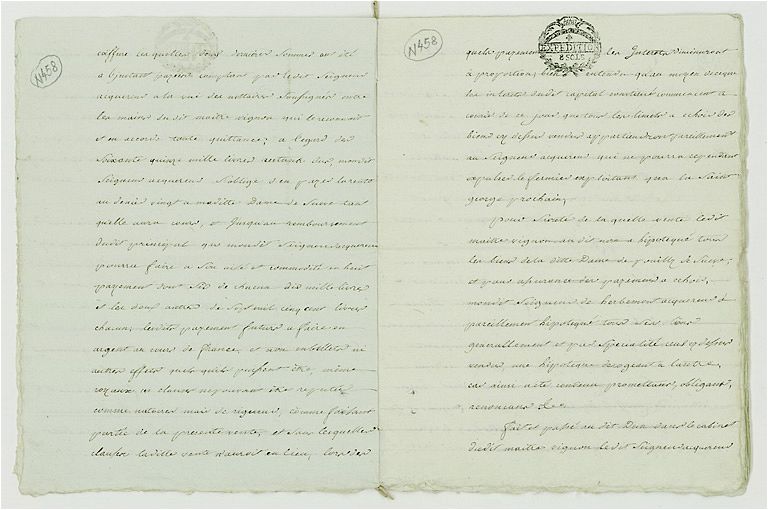 N458
coiffure les quelles deux dernières sommes ont été
a l'instant payées comptant par le dit Seigneur
acquereur a la vue des nottaires soussignés entre
les mains du dit maitre vignon qui le reconnoit
et en accorde toute quittance; a l'egard des
soixante quinze mille livres restant dus, mondit
Seigneur acquereur s'oblige d'en payer la rente
au denier vingt a maditte Dame de Suive tant
quelle aura cours, et Jusqu'au remboursement
dudit principal que mondit Seigneur acquereur
pourra faire a son aise et commodité en huit
payement dont six de chacun dix mille livres
et les deux autres de sept mil cinq cent livres
chacun, lesdits payement futurs a faire en
argent au cours de france, et non en billets ni
autres effets quels qu'ils puissent être, même
royaux, ces clauses ne pouvant être reputées
comme notoires mais de rigueur, comme faisant
partie de la presente vente, et sans lesquelles
clauses laditte vente n'auroit eu lieu, lors des
N458
EXPEDITION
8 SOLS
quels payement les Interets diminueront
à proportion, bien entendu qu'au moyen de ce que
les interets dudit capital constitué commencent a
courir de ce jour que tous les fruits a echoir des
biens cy dessus vendus appartiendront pareillement
au Seigneur acquereur qui ne pourra cependant
expulser le fermier exploitant qu'a la Saint
george prochain,
pour sureté de la quelle vente ledit
maitre vignon audit nom a hipotequé tous
les biens de la ditte Dame de pouilly de Suive,
et pour assurance des payement a echoir,
mondit Seigneur de herbemont acquereur a
pareillement hipotequé tous ses biens
generallement et par specialité ceux cy dessus
vendus, une hipoteque derogeant a l'autre,
car ainsi a été convenu promettant, obligant,
renoncant &c.
fait et passé au dit Dun dans le cabinet
dudit maitre vignon ledit Seigneur acquereur